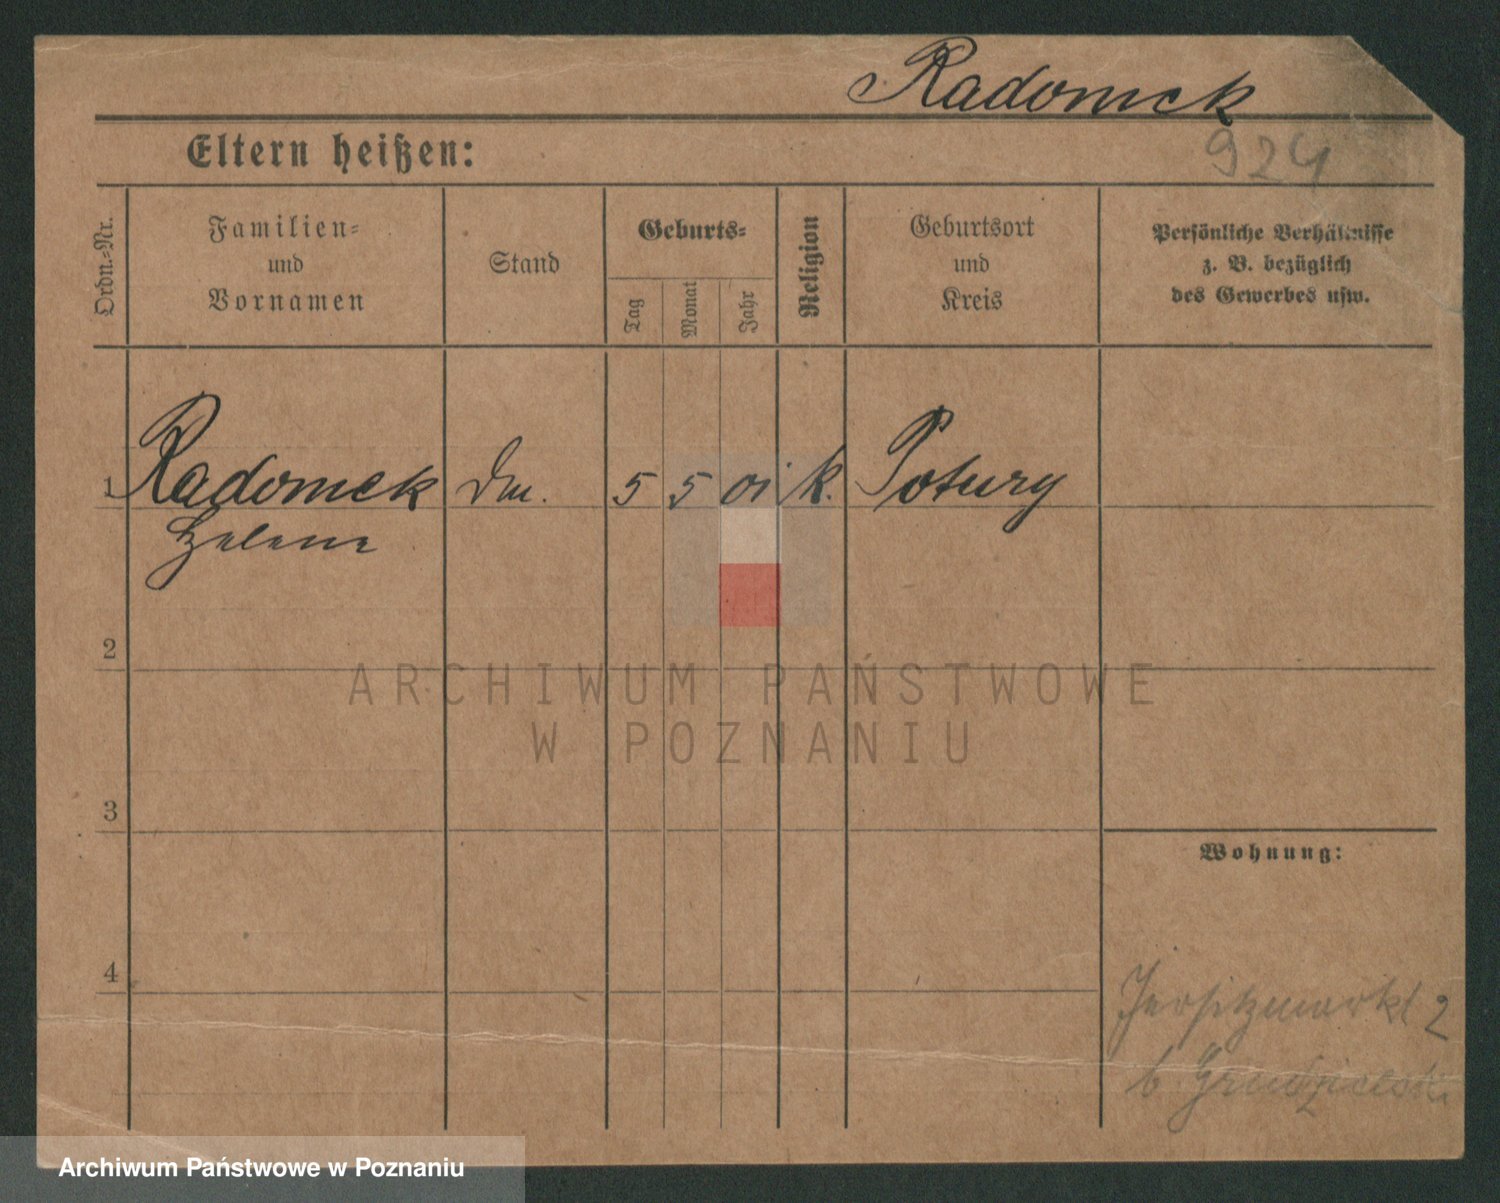 Radomek
Eltern heißen:
924
Ordn.-Nr.
Familien-
und
Vornamen
Stand
Geburts-
Tag
Monat
Jahr
Religion
Geburtsort
und
Kreis
Persönliche Verhältnisse
z. B. bezüglich
des Gewerbes usw.
1 Radomek 5 5 01 k. Potury
Helene
2
ARCHIWUM PAŃSTWOWE
W POZNANIU
3
Wohnung:
4
Jersitzmarkt 2
b.
Archiwum Państwowe w Poznaniu